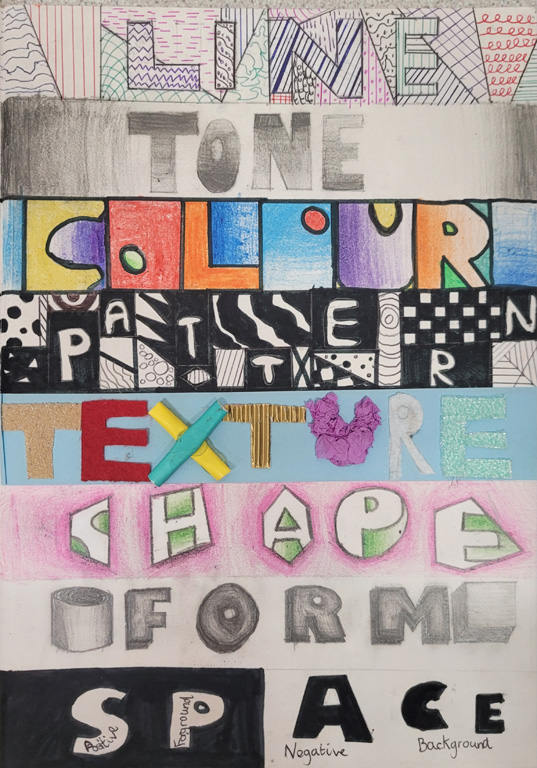 LINE
TONE
COLOUR
PATTERN
TEXTURE
SHAPE
FORM
SPACE
Positive
Foreground
Negative
Background